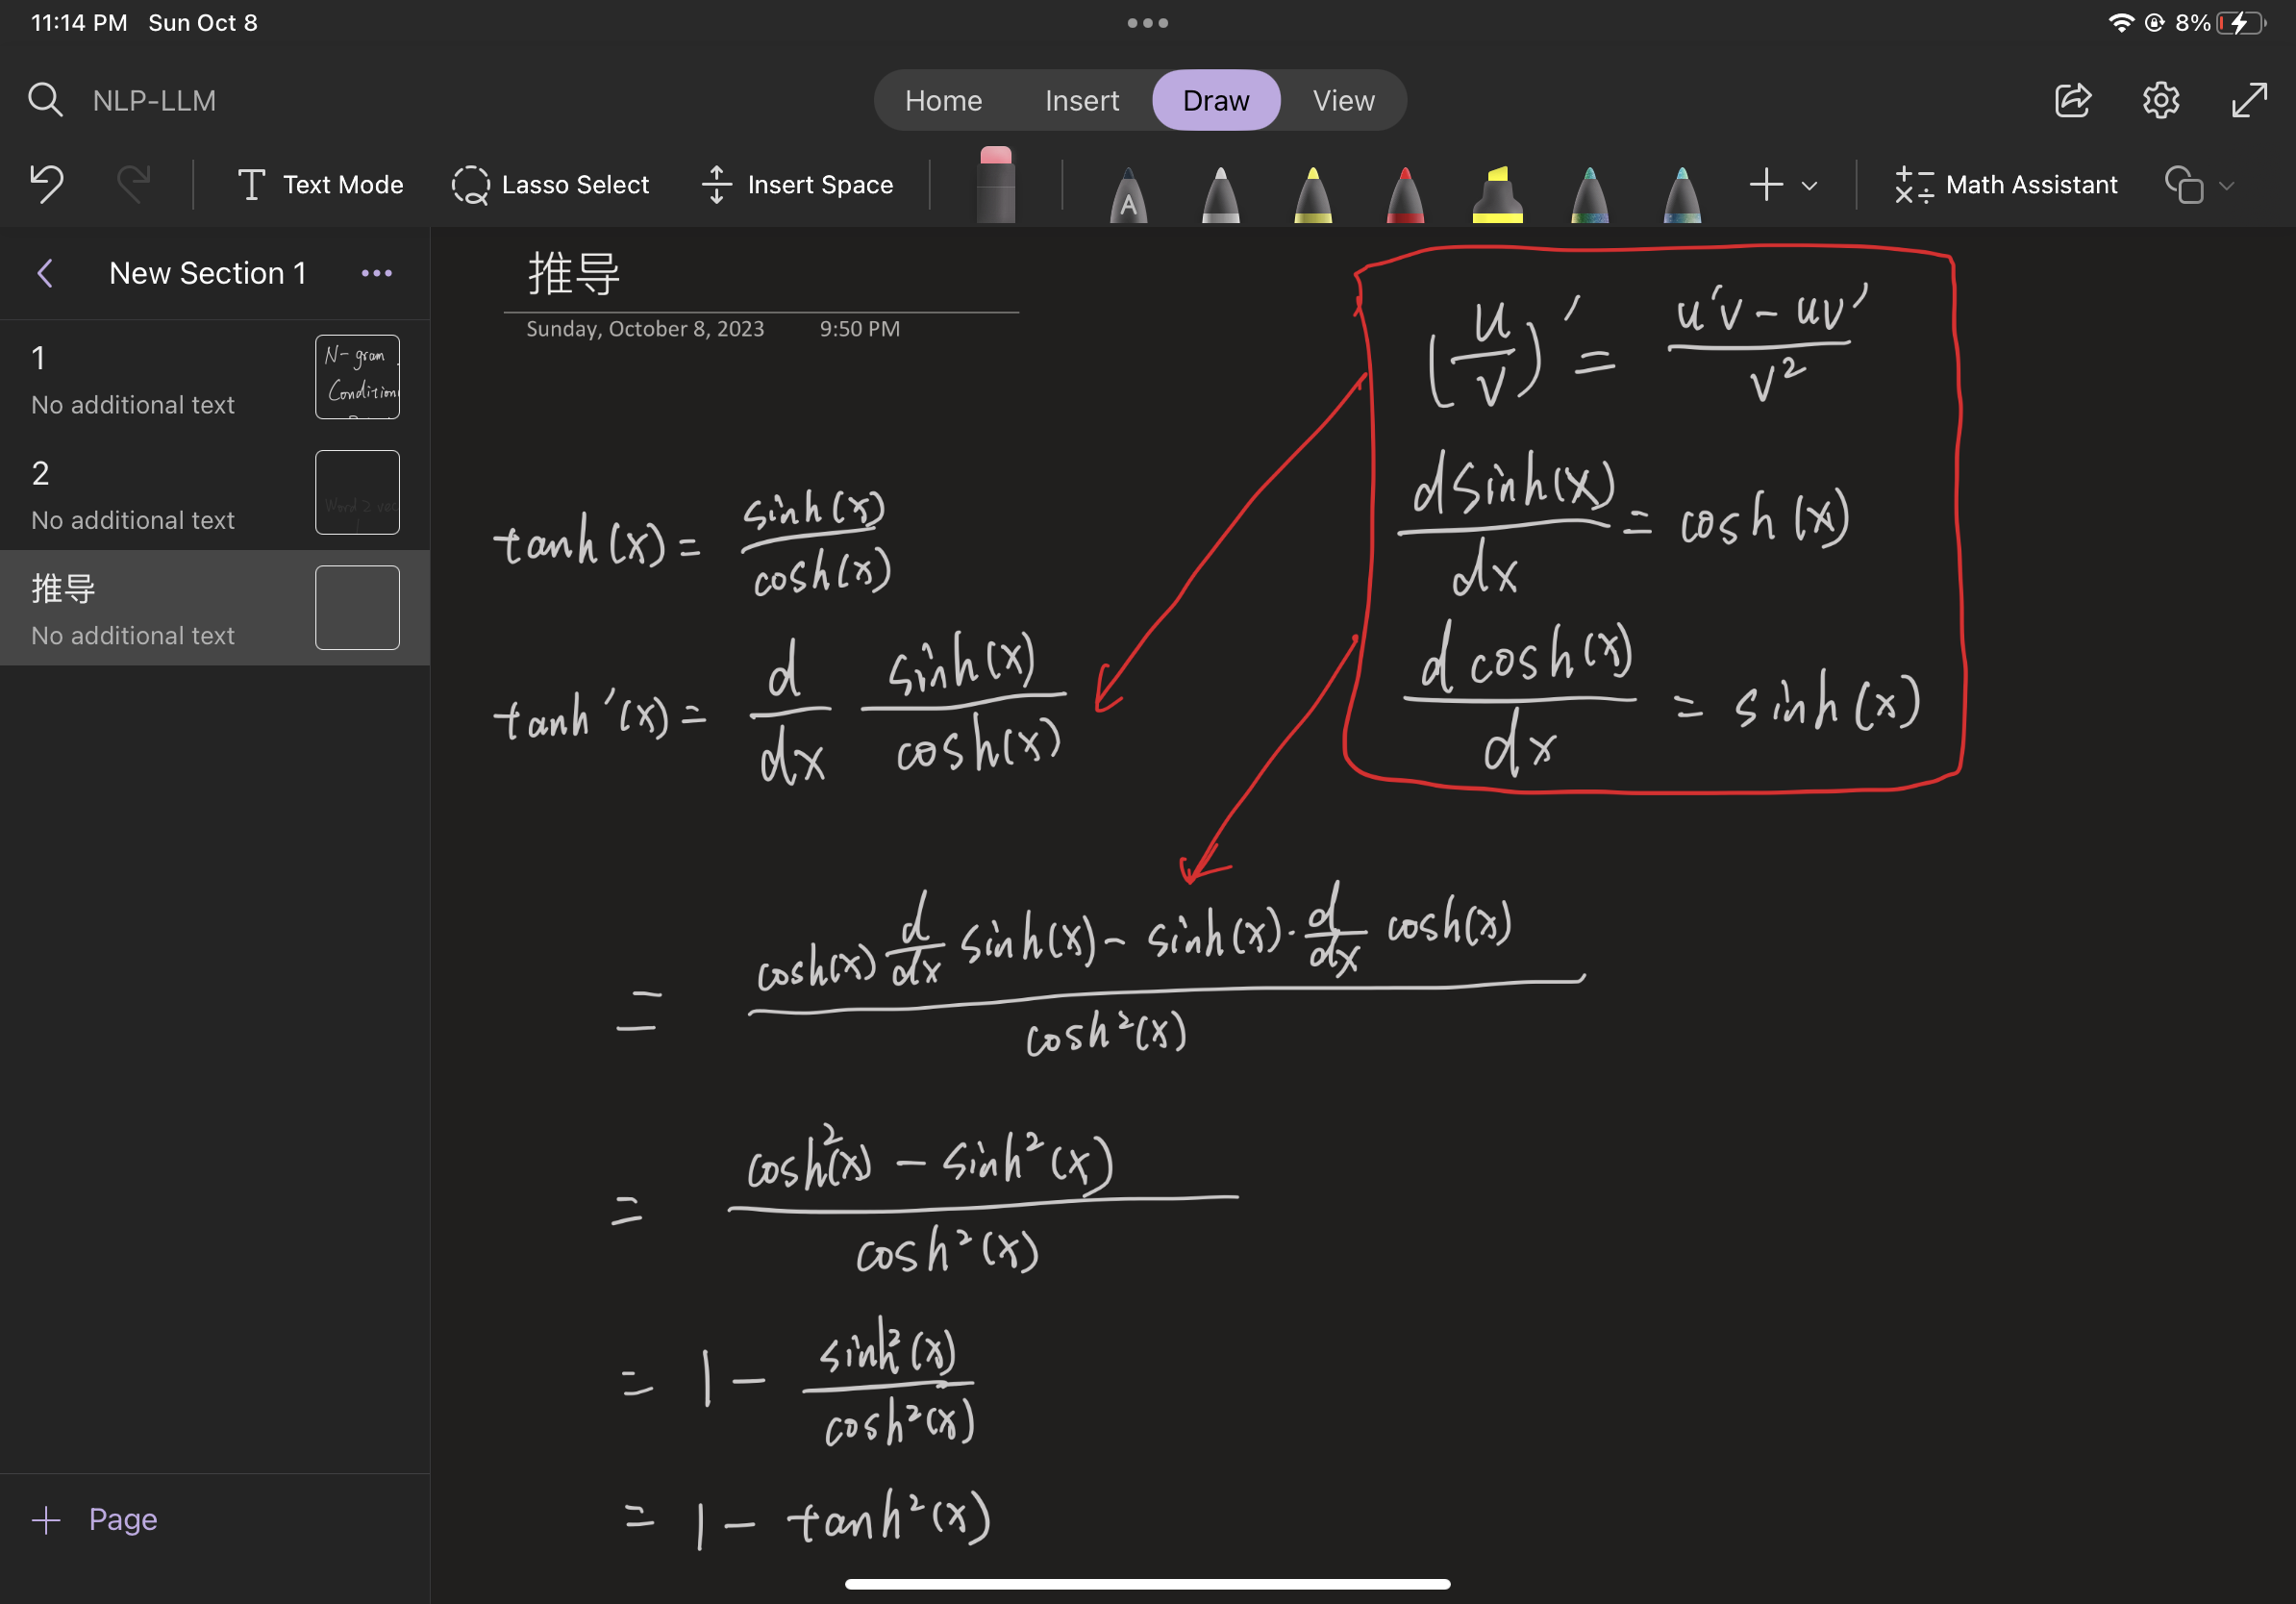 11:14 PM Sun Oct 8
8%
NLP-LLM
Home Insert Draw View
Text Mode Lasso Select Insert Space A Math Assistant
New Section 1
1
No additional text
N-gram
Condition
2
No additional text
Word 2 vec
推导
No additional text
+ Page
推导
Sunday, October 8, 2023 9:50 PM
(u/v)' = (u'v - uv')/v²
dsinh(x)/dx = cosh(x)
d cosh(x)/dx = sinh(x)
tanh(x) = sinh(x)/cosh(x)
tanh'(x) = d/dx sinh(x)/cosh(x)
= (cosh(x) d/dx sinh(x) - sinh(x) · d/dx cosh(x))/cosh²(x)
= (cosh²(x) - sinh²(x))/cosh²(x)
= 1 - sinh²(x)/cosh²(x)
= 1 - tanh²(x)